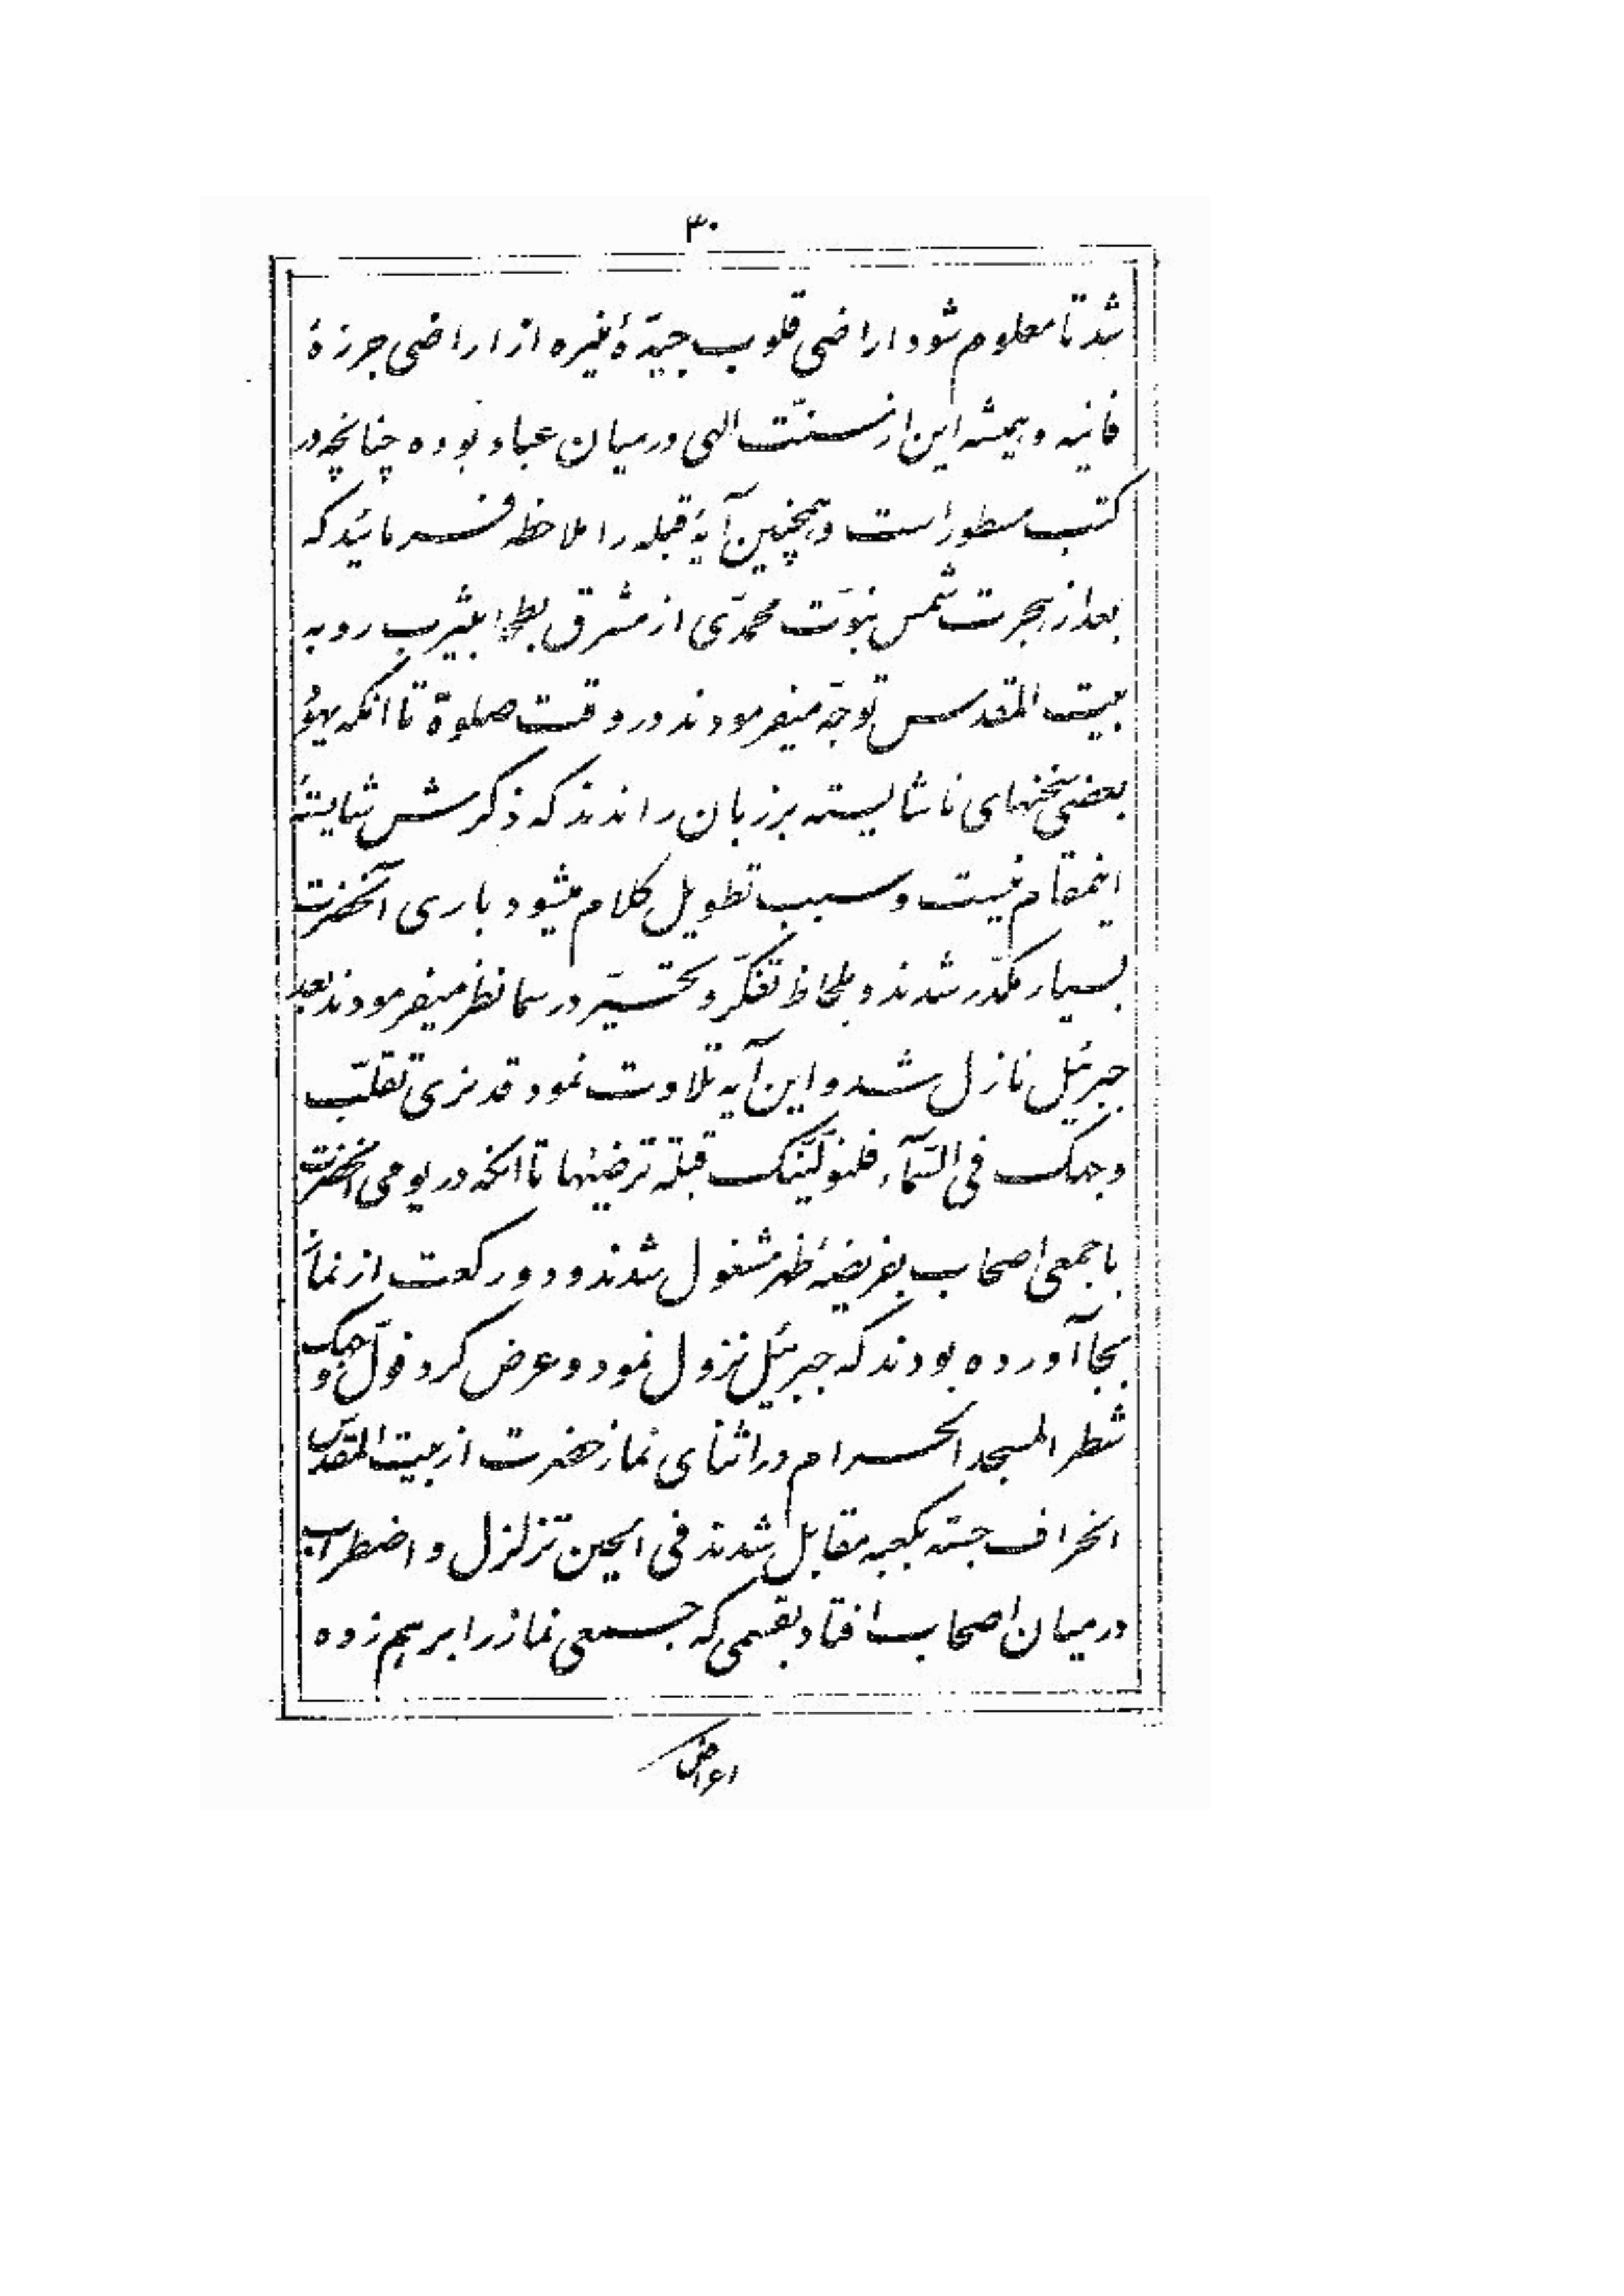 ۳۰
شد تا معلوم شود اراضی قلوب جیّدهٔ منیره از اراضی جرزهٔ
فانیه و همیشه این از سنّت الهی در میان عباد بوده چنانچه در
کتب مسطور است و همچنین آیهٔ قبله را ملاحظه فرمائید که
بعد از هجرت شمس نبوّت محمّدی از مشرق بطحا بیثرب رو به
بیت المقدس توجّه میفرمودند در وقت صلوة تا آنکه یهود
بعضی سخنهای ناشایسته بر زبان راندند که ذکرش شایستهٔ
اینمقام نیست و سبب تطویل کلام میشود باری آنحضرت
بسیار مکدّر شدند و بلحاظ تفکّر و تحیّر در سما نظر میفرمودند بعد
جبرئیل نازل شد و این آیه تلاوت نمود قد نری تقلّب
وجهک فی السّمآء فلنولّینّک قبلة ترضیٰها تا آنکه در یومی آنحضرت
با جمعی اصحاب بفریضهٔ ظهر مشغول شدند و دو رکعت از نماز
بجا آورده بودند که جبرئیل نزول نمود و عرض کرد فولّ وجهک
شطر المسجد الحرام در اثنای نماز حضرت از بیت المقدّس
انحراف جسته بکعبه مقابل شدند فی الحین تزلزل و اضطراب
در میان اصحاب افتاد بقسمی که جمعی نماز را بر هم زده
اعراض